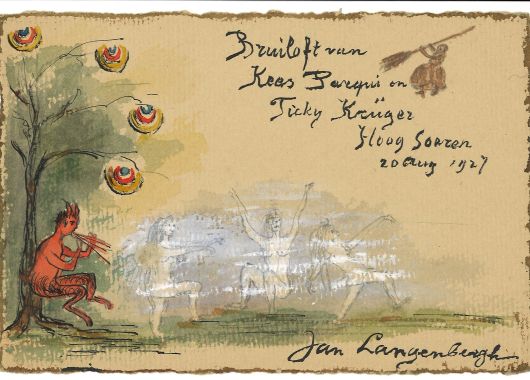 Bruiloft van
Kees Barqui en
Ticky Krüger
Hoog Soeren
20 Aug 1927
Jan Langenbergh